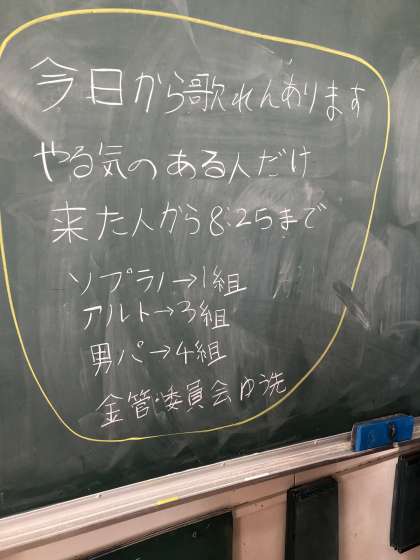 今日から歌れんあります
やる気のある人だけ
来た人から8:25まで
ソプラノ→1組
アルト→3組
男パ→4組
金管・委員会ゆ先